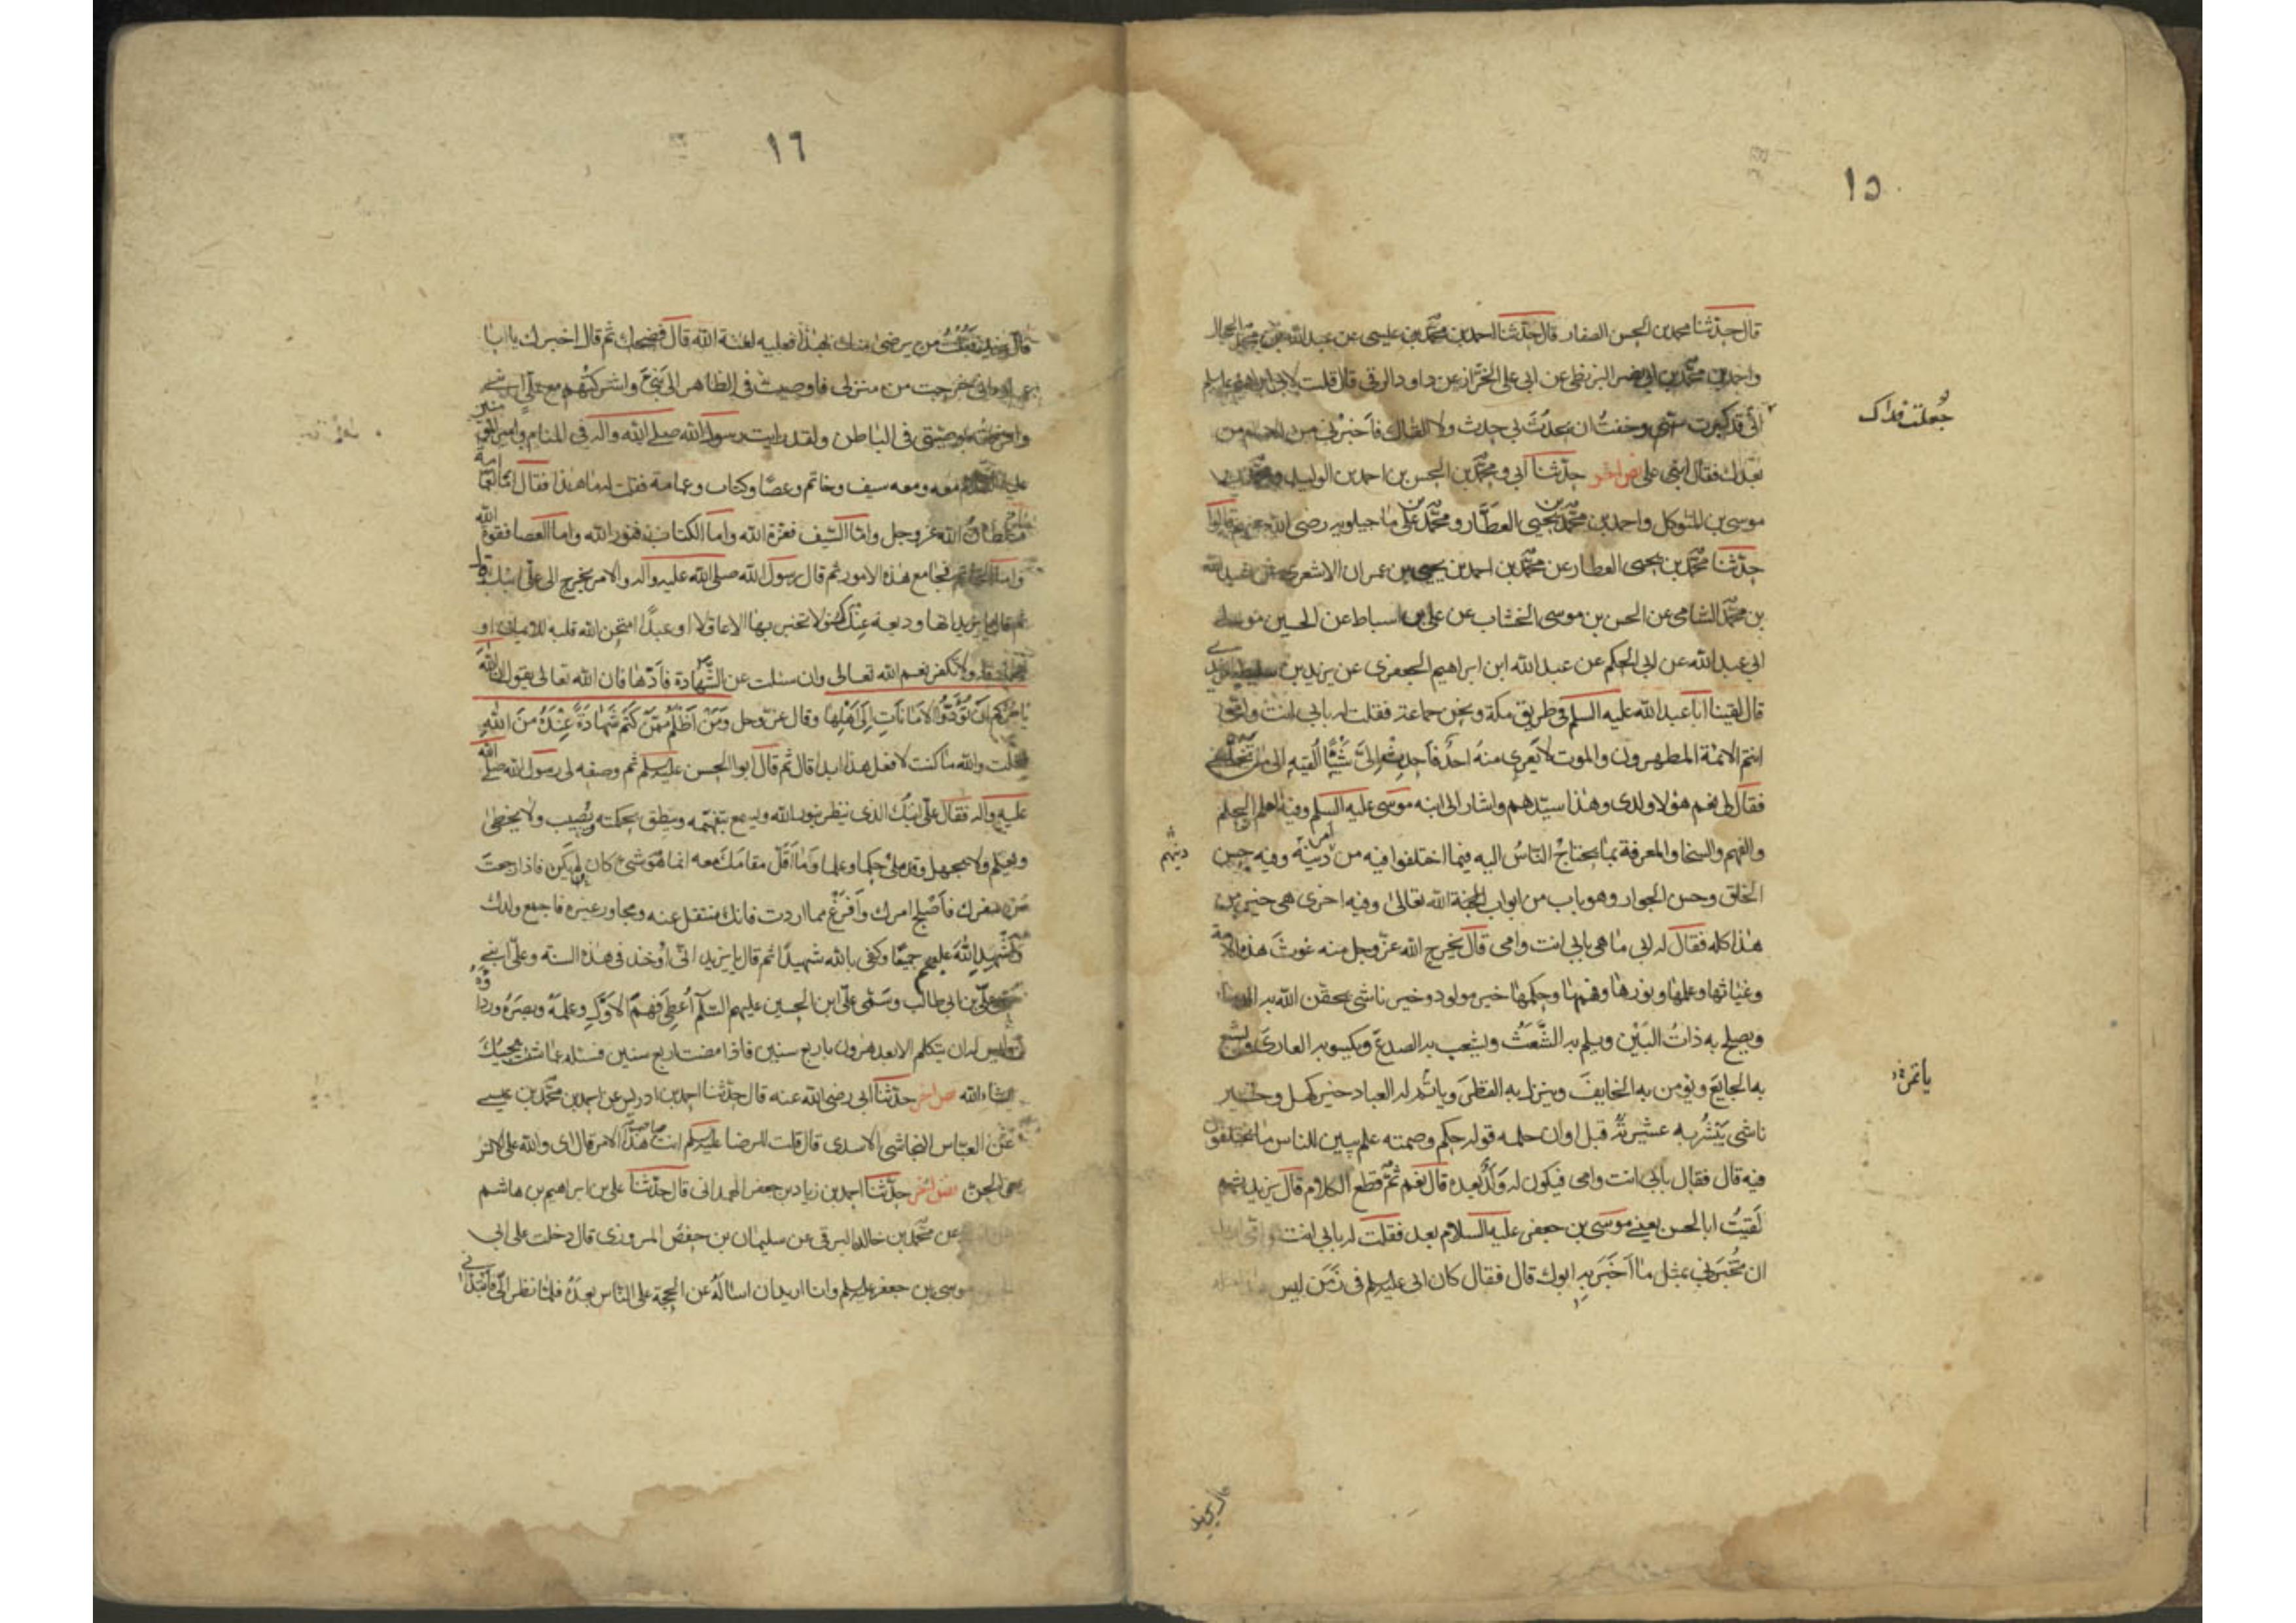 ١٥
قال حدثنا محمد بن الحسن الصفار قال حدثنا احمد بن محمد بن عيسى عن عبد الله بن محمد الحجال
واحمد بن محمد بن ابى نصر البزنطى عن ابى على الخزاز عن داود الرقى قال قلت لابى ابراهيم عليه السلم
انى قد كبرت سنى وخفت ان يحدث بى حدث ولا القاك فاخبرنى من الامام من
جُعلت فداك
بعدك فقال ابنى على نص اخر حدثنا ابى و محمد بن الحسن بن احمد بن الوليد و محمد بن
موسى بن المتوكل واحمد بن محمد بن يحيى العطّار ومحمد بن على ماجيلويه رضى الله عنهم قالوا
حدّثنا محمّد بن يحيى العطار عن محمّد بن احمد بن يحيى بن عمران الاشعرى عن عبد الله
بن محمّد الشامى عن الحسن بن موسى الخشاب عن على بن اسباط عن الحسين مولى
ابى عبد الله عن ابى الحكم عن عبد الله ابن ابراهيم الجعفرى عن يزيد بن سليط الزيدى
قال لقينا ابا عبد الله عليه السلم فى طريق مكة ونحن جماعة فقلت له بابى انت وامى
انتم الائمة المطهرون والموت لا يَعرى منهُ احدٌ فاحدث الىّ شيئًا اُلقيه الى من يخلفنى
فقال لى نعم هؤلاء ولدى وهٰذا سيّدهم واشار الى ابنه موسى عليه السلم وفيه العلم والحلم
والفهم والسخا والمعرفة بما يحتاجُ النّاسُ اليه فيما اختلفوا فيه من امر دينهم وفيه حسن
دينهم
الخلق وحسن الجوار وهو باب من ابواب الله تعالىٰ وفيه اخرى هى خير من
هٰذا كله فقال له ابى ما هى بابى انت وامى قال يُخرج الله عزّ وجل منه غوثَ هذه الامة
وغياثها وعلمها ونورها وفهمها وحكمها خير مولود وخير ناشى يحقن الله به الدماء
ويصلح به ذاتُ البَيْن ويلم به الشَّعَثُ ويشعب به الصدعَ ويكسو به العارى ويشبع
به الجايعَ ويؤمن به الخايفَ وينزل به القطرَ وياتمر له العباد خير كهل وخير
ياتمرُ
ناشى يبشّر به عشيرته قبل اوان حلمه قوله حكم وصمته علم يبين للناس ما يختلفون
فيه قال فقال بابى انت وامى فيكون له ولَدٌ بعده قال نعم ثمّ قطع الكلام قال يزيد ثم
لَقيتُ ابا الحسن يعنى موسى بن جعفر عليه السلام بعد فقلت له بابى انت وامى
ان تُخبرنى بمثل ما اَخبَرَ به ابوك قال فقال كان ابى عليه السلم فى زَمَن ليس
١٦
من يرضىٰ منك بهٰذا فعليه لعنة الله قال فضحك ثم قال اخبرك يا ابا
عمارة انى خرجت من منزلى فاوصيت فى الظاهر الى بَنىّ واشركتهم مع على ابنى
وافردته بوصيّتى فى الباطن ولقد رايت رسول الله صلى الله واله فى المنام وامير المؤمنين
عليه السلم معه ومعه سيف وخاتم وعصًا وكتاب وعمامة فقلت له ما هذا فقال امّا العمامة
فسلطان الله عز وجل وامّا السّيف فعزّة الله وامّا الكتاب فنور الله واما العصا فقوة الله
وامّا الخاتم فجامع هٰذه الامور ثم قال رسول الله صلى الله عليه واله والامر يخرج الى علىّ ابنك قال
ثم قال يا يزيد انها وديعة عندك فلا تخبر بها الا عاقلا او عبدًا امتحن الله قلبه للايمان او
صادقا ولا تكفر نعم الله تعالى وان سئلت عن الشّهادة فادّها فان الله تعالى يقول ان الله
يامُرُكم اَن تُؤدّوا الامانات اِلى اَهلِها وقال عزّ وجل ومَن اَظلَمُ ممّن كَتَمَ شَهادةً عِندَهُ منَ اللهِ
فقلت والله ما كنت لافعل هذا ابدا قال ثم قال ابو الحسن عليه السلم ثم وصفه لى رسول الله صلى الله
عليه واله فقال علىّ ابنك الذى ينظر بنور الله ويسمع بتفهيمه وينطق بحكمته يُصيب ولا يخطى
ويعلم ولا يجهل وقد ملئ حكما وعلما وَما اَقَلّ مقامَكَ معه انما هو شئ كان لم يكن فاذا رجعت
من سفرك فاَصْلِح امرك وافْرغْ مما اردت فانك منتقل عنه ومجاور غيره فاجمع ولدك
واَشْهِد اللهَ عليهم جميعًا وكفى بالله شهيدًا ثم قال يا يزيد انى اُوخذ فى هٰذه السنة وعلىّ ابنى
سمىّ علىّ بن ابى طالب وسَمىّ علىّ ابن الحسين عليهم السّلم اُعطِىَ فهم الاوّل وعلمه وبصَرَهُ وردائه
وليس له ان يتكلم الا بعد هٰرون باربع سنين فاذا مضت اربع سنين فسئله عمّا شئت يجبك
انشاء الله نص اخر حدّثنا ابى رضى الله عنه قال حدّثنا احمد بن ادريس عن احمد بن محمّد بن عيسى
عن العبّاس النجاشى الاسدى قال قلت للرضا عليه السلم انت صاحب هٰذا الامر قال اى والله على الانس
والجن نص اخر حدّثنا احمد بن زياد بن جعفر الهمدانى قال حدّثنا على بن ابراهيم بن هاشم
عن محمّد بن خالد البرقى عن سليمان بن حفص المروزى قال دخلت على ابى
موسى بن جعفر عليه السلم وانا اريد ان اسالهُ عن الحجة على النّاس بعدهُ فلمّا نظر الىّ فابتدانى